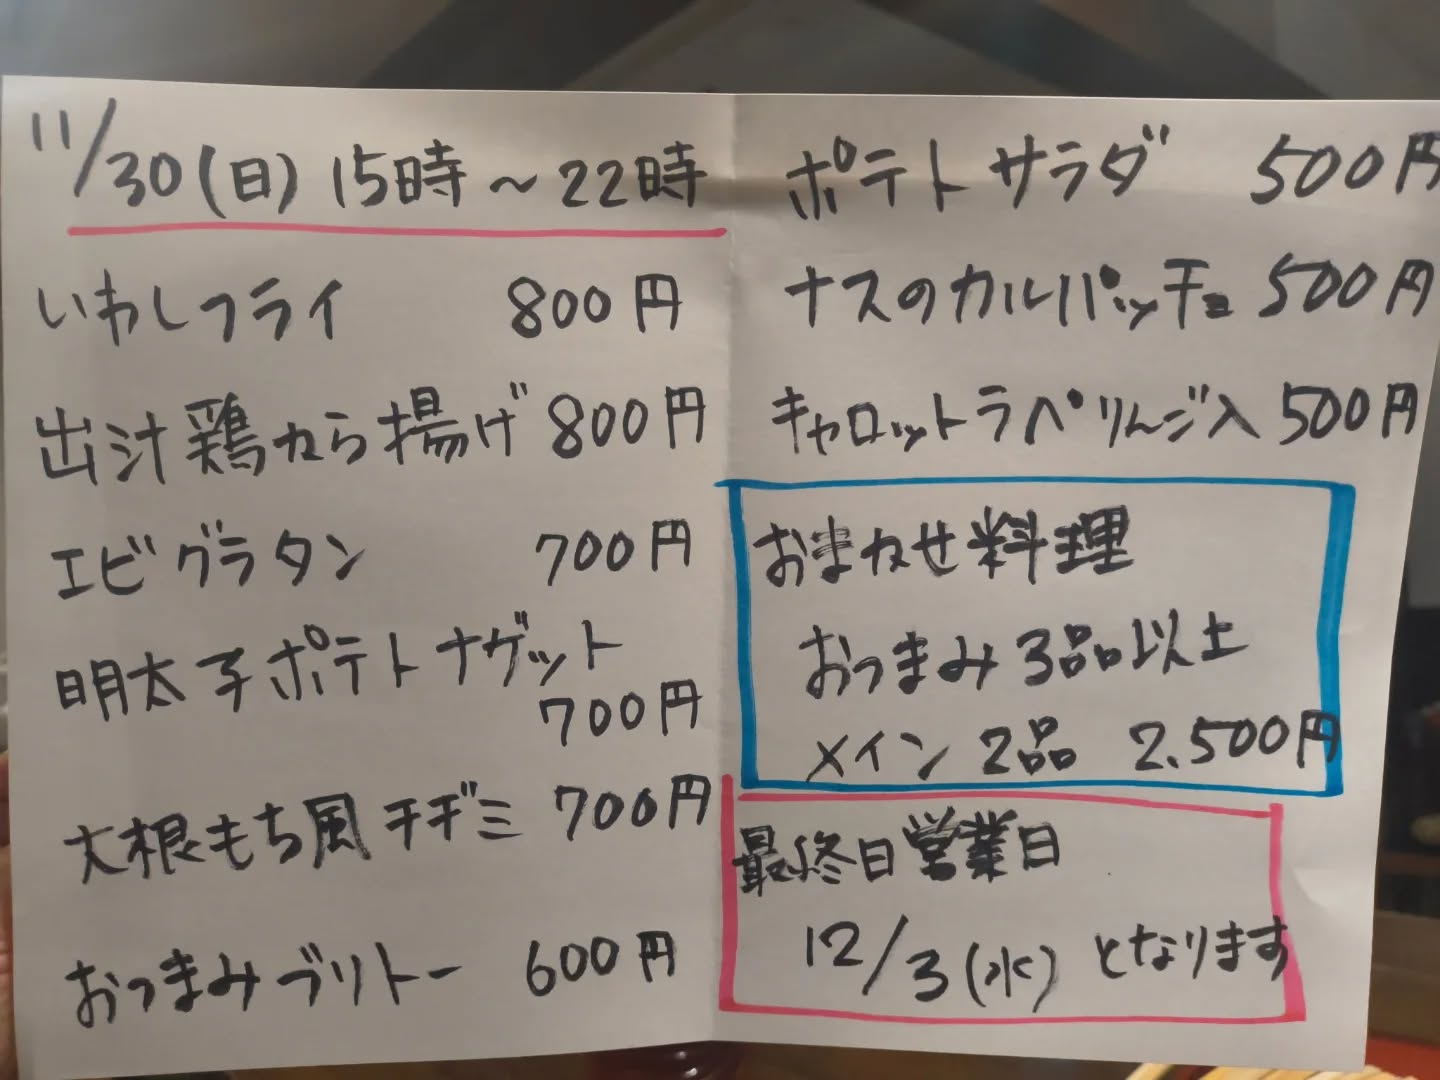 11/30(日) 15時~22時
いわしフライ 800円
出汁鶏から揚げ 800円
エビグラタン 700円
明太子ポテトナゲット
700円
大根もち風チヂミ 700円
おつまみブリトー 600円
ポテトサラダ 500円
ナスのカルパッチョ 500円
キャロットラペりんご入 500円
おまかせ料理
おつまみ3品以上
メイン 2品 2.500円
最終日営業日
12/3(水) となります